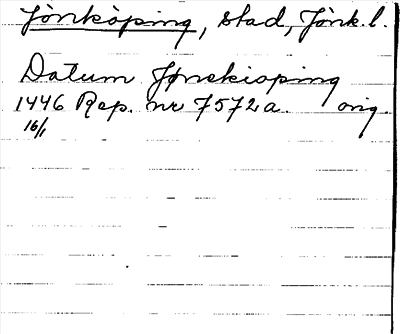 Jönköping, stad, Jönk. l.
Datum Jønekioping
1446 Rep. nr 7572a. orig.
16/1